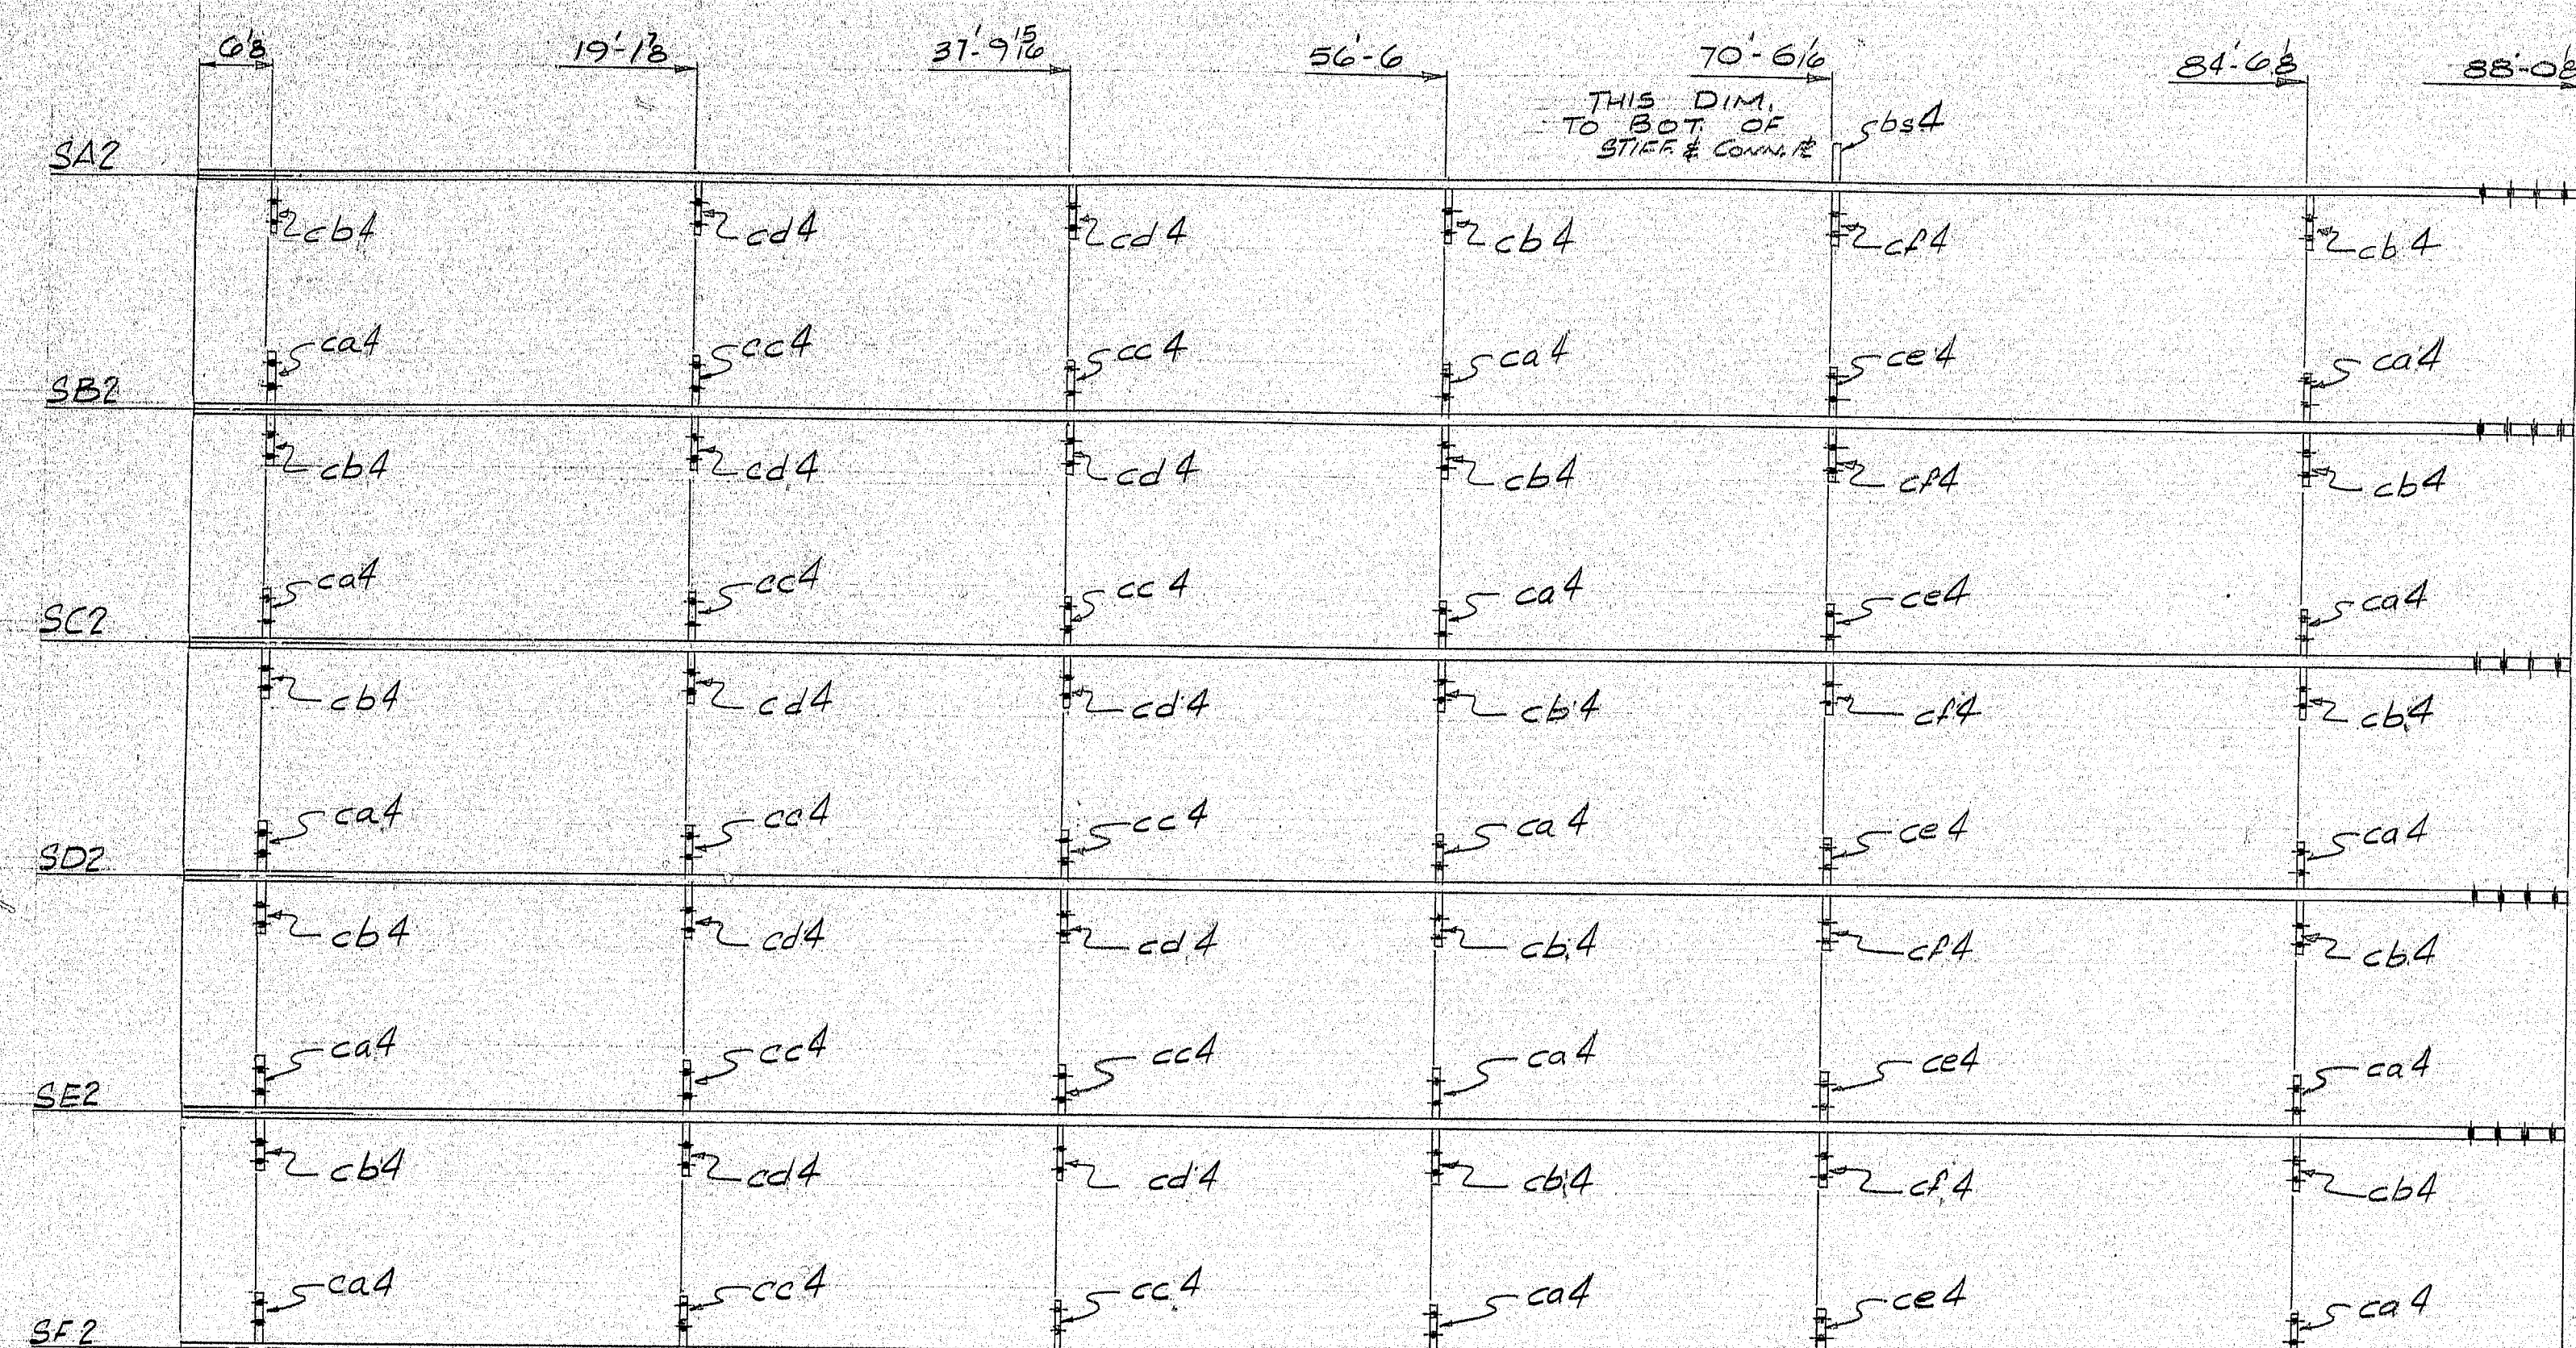 6⅛ 19'-1⅞ 37'-9 15/16 56'-6 70'-6 1/16 84'-6⅛ 88'-0⅛
THIS DIM.
TO BOT. OF
STIFF. & CONN. ℄
bs4
SA2
cb4 cd4 cd4 cb4 cf4 cb4
ca4 cc4 cc4 ca4 ce4 ca4
SB2
cb4 cd4 cd4 cb4 cf4 cb4
ca4 cc4 cc4 ca4 ce4 ca4
SC2
cb4 cd4 cd4 cb4 cf4 cb4
ca4 cc4 cc4 ca4 ce4 ca4
SD2
cb4 cd4 cd4 cb4 cf4 cb4
ca4 cc4 cc4 ca4 ce4 ca4
SE2
cb4 cd4 cd4 cb4 cf4 cb4
ca4 cc4 cc4 ca4 ce4 ca4
SF2